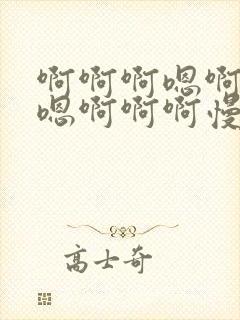 啊啊啊嗯啊
嗯啊啊啊慢
高士奇